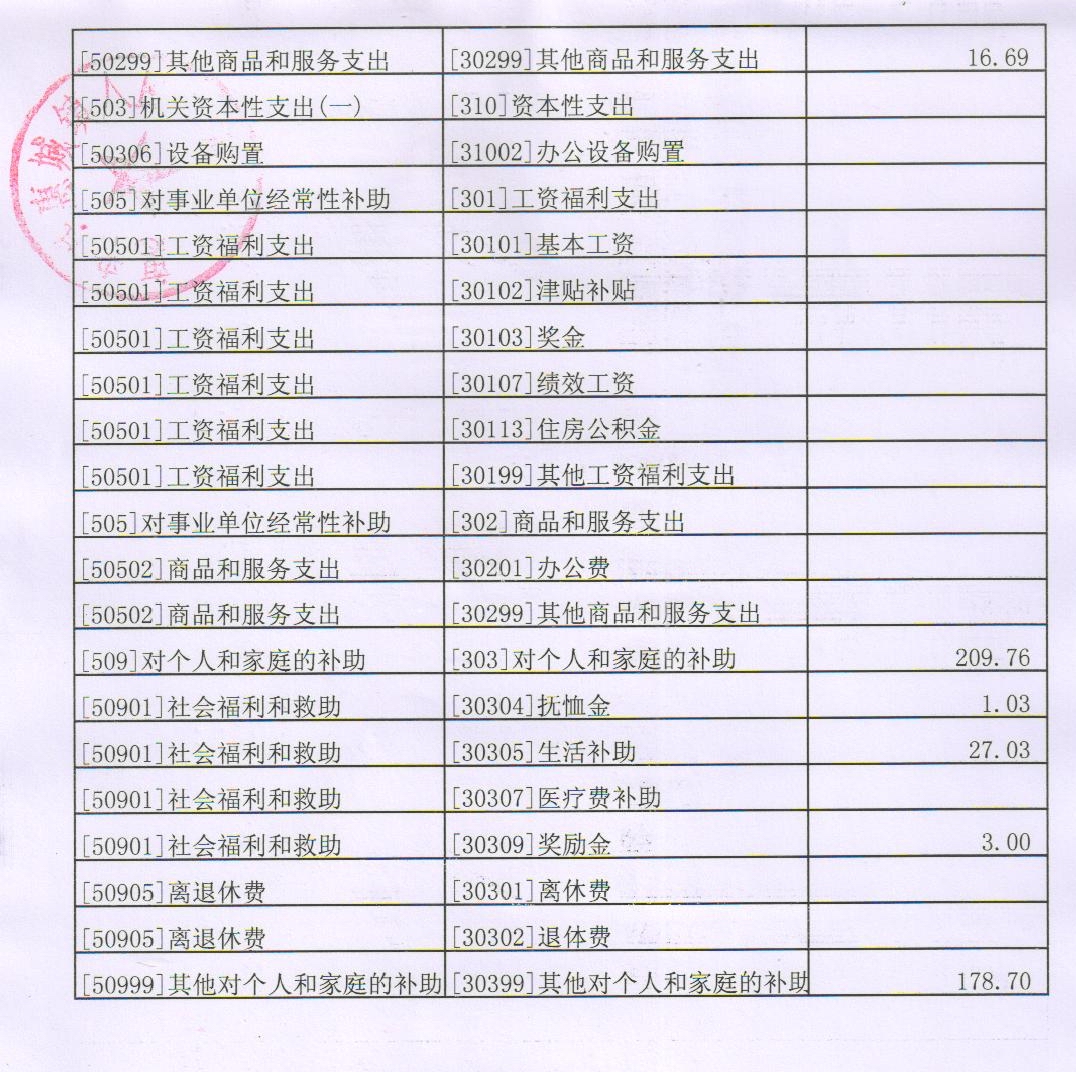 [50299]其他商品和服务支出 [30299]其他商品和服务支出 16.69
[503]机关资本性支出(一) [310]资本性支出
[50306]设备购置 [31002]办公设备购置
[505]对事业单位经常性补助 [301]工资福利支出
[50501]工资福利支出 [30101]基本工资
[50501]工资福利支出 [30102]津贴补贴
[50501]工资福利支出 [30103]奖金
[50501]工资福利支出 [30107]绩效工资
[50501]工资福利支出 [30113]住房公积金
[50501]工资福利支出 [30199]其他工资福利支出
[505]对事业单位经常性补助 [302]商品和服务支出
[50502]商品和服务支出 [30201]办公费
[50502]商品和服务支出 [30299]其他商品和服务支出
[509]对个人和家庭的补助 [303]对个人和家庭的补助 209.76
[50901]社会福利和救助 [30304]抚恤金 1.03
[50901]社会福利和救助 [30305]生活补助 27.03
[50901]社会福利和救助 [30307]医疗费补助
[50901]社会福利和救助 [30309]奖励金 3.00
[50905]离退休费 [30301]离休费
[50905]离退休费 [30302]退体费
[50999]其他对个人和家庭的补助 [30399]其他对个人和家庭的补助 178.70